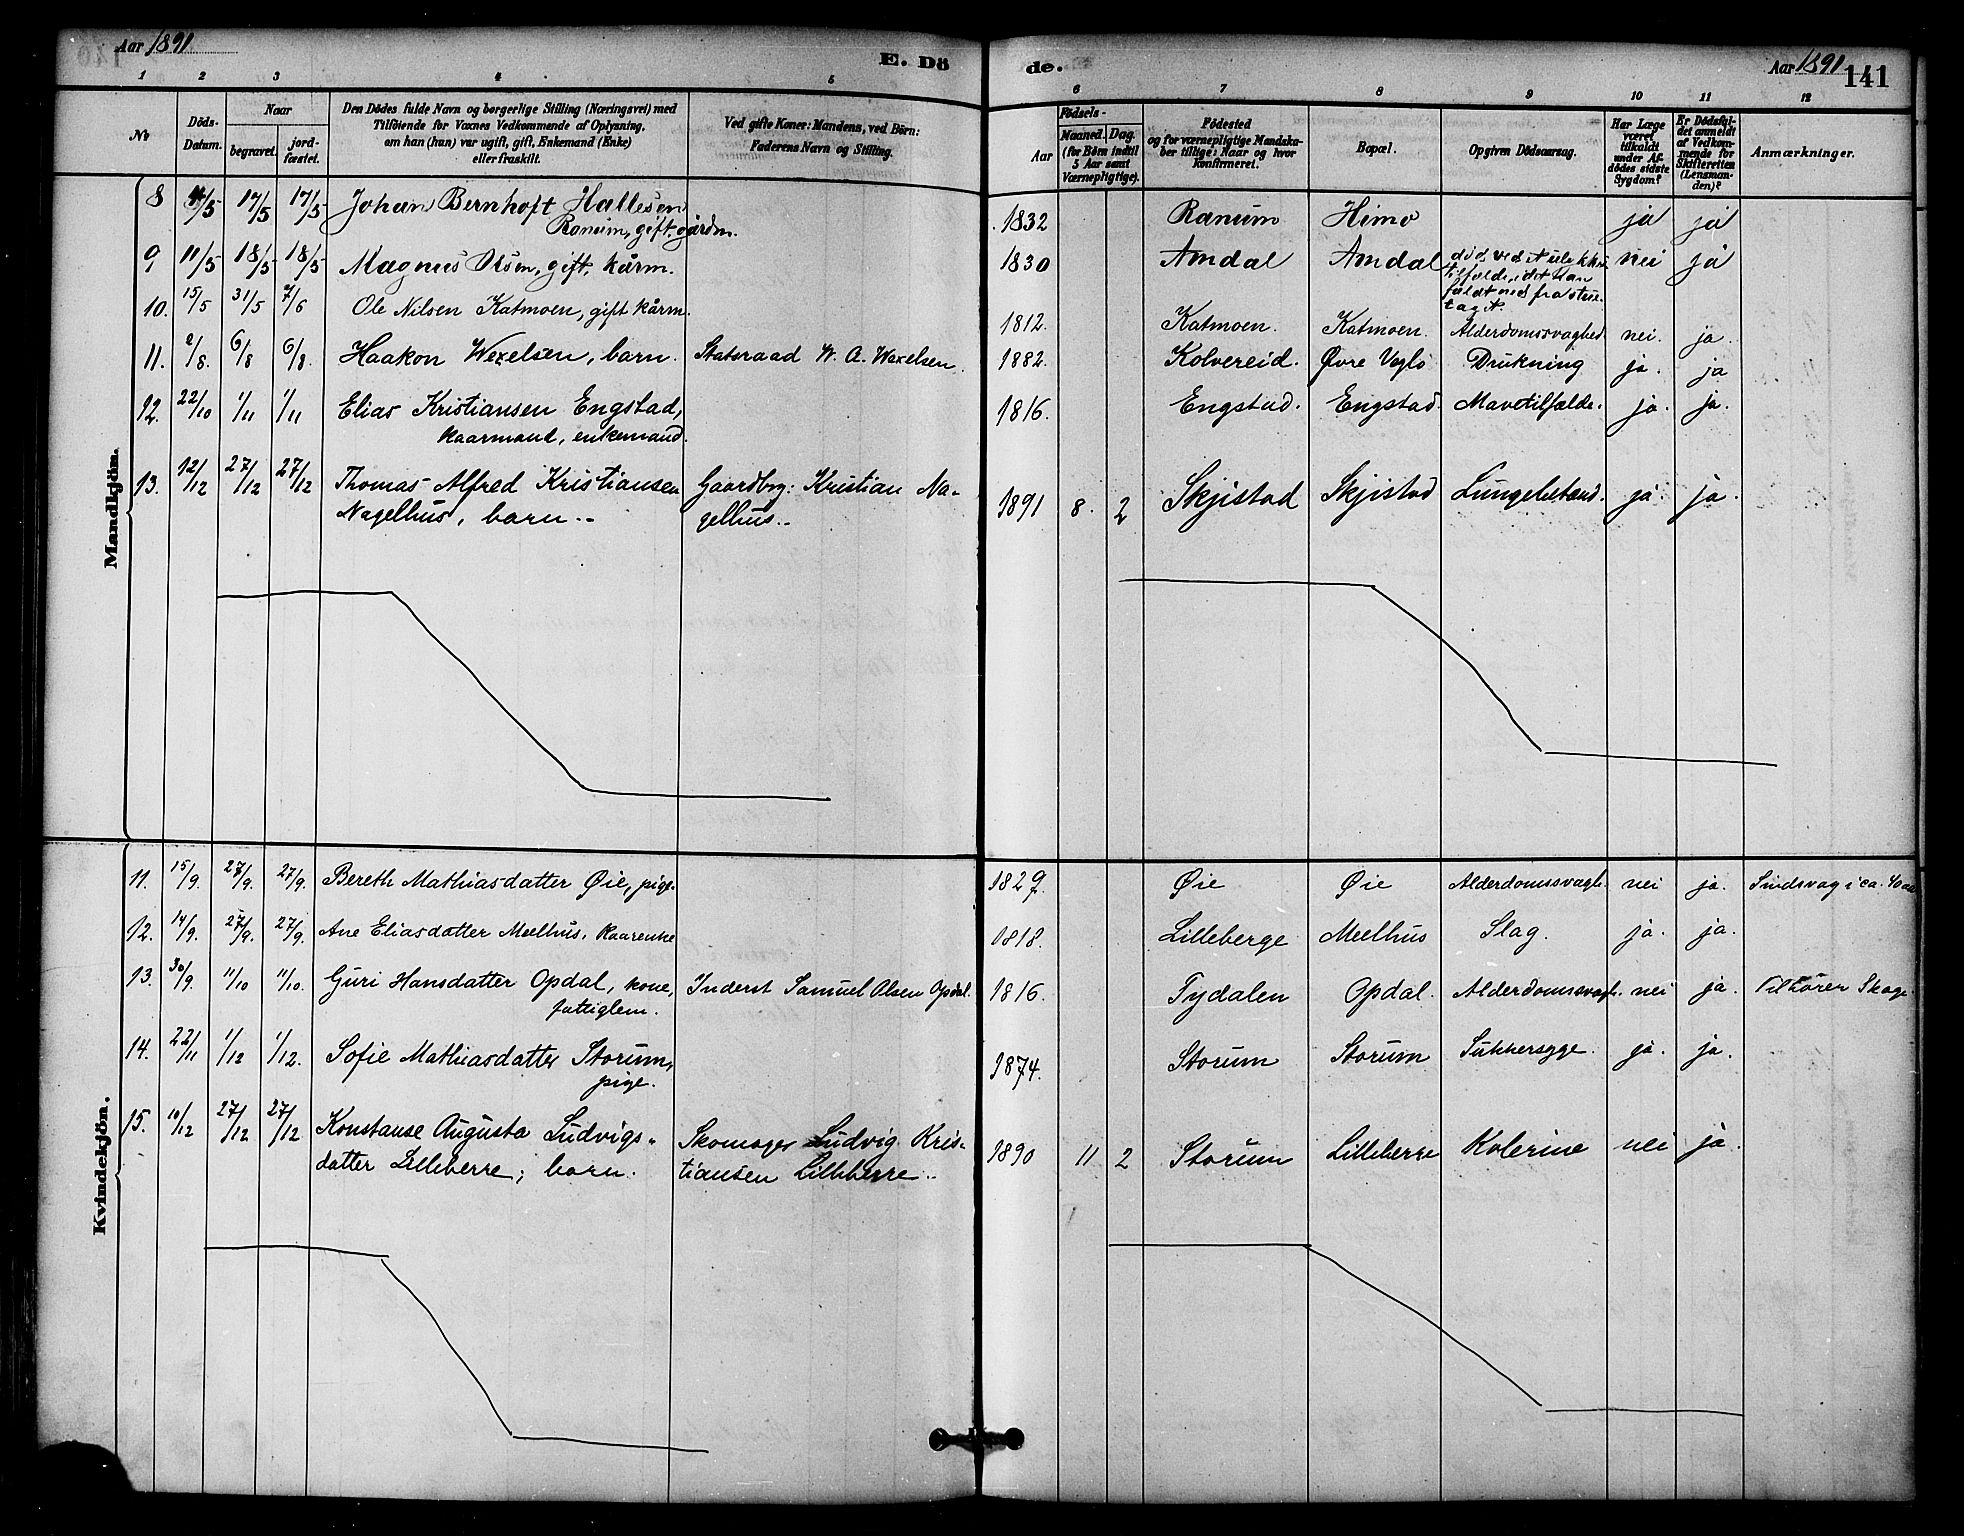 Aar 1891
E. Dö
de.
Aar 1891
141
1 2 3 4 5
6 7 8 9 10 11 12
No
Döds-
Datum.
Naar
begravet.
jord-
fæstet.
Den Dödes fulde Navn og borgerlige Stilling (Næringsvei) med
Tilföiende for Voxnes Vedkommende af Oplysning,
om han (hun) var ugift, gift, Enkemand (Enke)
eller fraskilt.
Ved gifte Koner: Mandens, ved Börn:
Faderens Navn og Stilling.
Födsels-
Aar
Maaned. Dag.
(for Börn indtil
5 Aar samt
Værnepligtige).
Födested
og for værnepligtige Mandska-
ber tillige: Naar og hvor
konfirmeret.
Bopæl.
Opgiven Dödsaarsag.
Har Læge
været
tilkaldt
under Af-
dödes sidste
Sygdom?
Er Dödsfal-
det anmeldt
af Vedkom-
mende for
Skifteretten
(Lensman-
den)?
Anmærkninger.
Mandkjön.
8 /5 17/5 17/5 Johan Bernhoft Hallesen
Ranum, gift, gårdm.
1832 Ranum Himo ja ja
9 11/5 18/5 18/5 Magnus Olsen, gift, kårm.
1830 Amdal Amdal død ved et ulykkes-
tilfælde, idet han
faldt ned fra stue-
taget. nei ja
10. 15/5 31/5 7/6 Ole Nilsen Katmoen, gift kårm.
1812. Katmoen. Katmoen. Alderdomssvaghed nei. ja.
11. 2/8. 6/8 6/8. Haakon Wexelsen, barn. Statsraad W. A. Wexelsen.
1882. Kolvereid. Øvre Veglø Drukning ja. ja
12. 22/10 1/11 1/11 Elias Kristiansen Engstad,
kaarmand, enkemand.
1816. Engstad. Engstad. Mavetilfælde. ja. ja.
13. 12/12 27/12 27/12 Thomas Alfred Kristiansen Gaardbrg: Kristian Na-
Nagelhus, barn.- gelhus.-
1891 8. 2 Skjistad Skjistad Lungebetænd. ja. ja.
Kvindekjön.
11. 15/9. 27/9. 27/9. Bereth Mathiasdatter Øie, pige.
1829. Øie Øie Alderdomssvagh. nei ja. Sindsvag i ca. 40 aar
12. 14/9. 27/9. 27/9. Ane Eliasdatter Meelhus, kaarenke
1818. Lilleberge Meelhus Slag. ja. ja.
13. 30/9. 11/10 11/10. Guri Hansdatter Opdal, kone, Inderst Samuel Olsen Opdal.
fattiglem.
1816. Tydalen Opdal. Alderdomssvagh. nei ja. Tilhører Skage
14. 22/11 1/12 1/12. Sofie Mathiasdatter Storum,
pige.
1874. Storum Storum Sukkersyge. ja. ja.
15. 10/12 27/12 27/12 Konstanse Augusta Ludvigs- Skomager Ludvig Kris-
datter Lilleberre, barn. tiansen Lilleberre..
1890 11 2 Storum Lilleberre Kolerine nei ja.